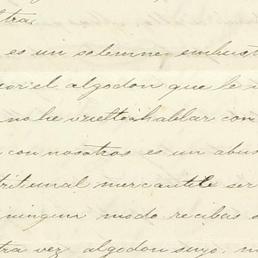 otra.
es un solemne embust
por el algodon que le v
no he vuelto á hablar con
con nosotros es un abu
tribunal mercantil ser
ningun modo recibas s
tra vez algodon suyo, n